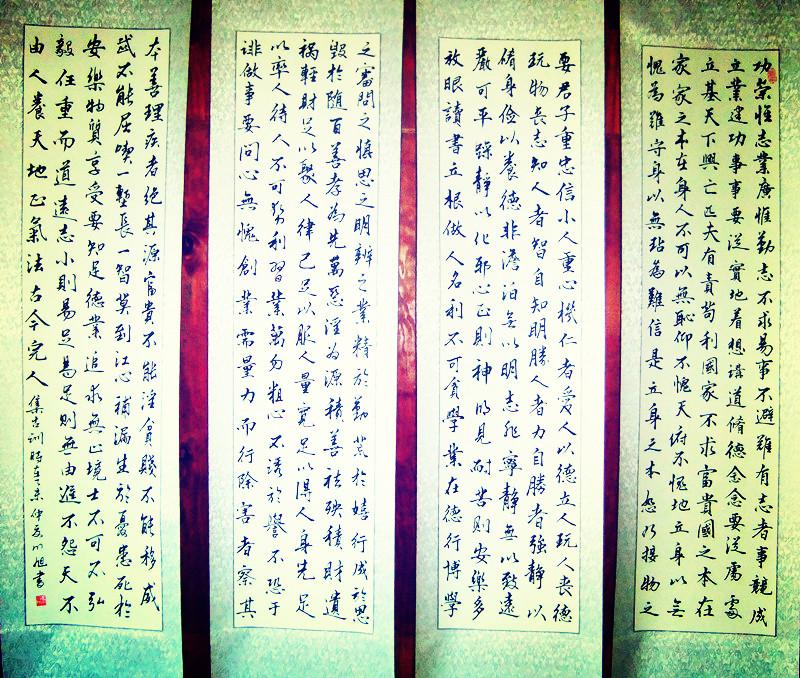 功崇惟志業廣惟勤志不求易事不避難有志者事競成
立業建功事事要從實地着想講道脩德念念要從處處
立基天下興亡匹夫有責苟利國家不求富貴國之本在
家家之本在身人不可以無恥仰不愧天俯不愧地立身以無
愧為難守身以無玷為難信是立身之本恕乃接物之
要君子重忠信小人重心機仁者愛人以德立人玩人喪德
玩物喪志知人者智自知明勝人者力自勝者強靜以
脩身儉以養德非澹泊無以明志非寧靜無以致遠
嚴可平躁靜以化邪心正則神明見耐苦則安樂多
放眼讀書立根做人名利不可貪學業在德行博學
之審問之慎思之明辨之業精於勤荒於嬉行成於思
毀於隨百善孝為先萬惡淫為源積善祛殃積財遺
禍輕財足以聚人律己足以服人量寬足以得人身先足
以率人待人不可勢利習業萬勿粗心不誘於譽不恐于
誹做事要問心無愧創業需量力而行除害者察其
本善理疾者絕其源富貴不能淫貧賤不能移威
武不能屈喫一塹長一智莫到江心補漏生於憂患死於
安樂物質享受要知足德業追求無止境士不可不弘
毅任重而道遠志小則易足易足則無由進不怨天不
由人養天地正氣法古今完人 集古訓時 仲夏川旭書